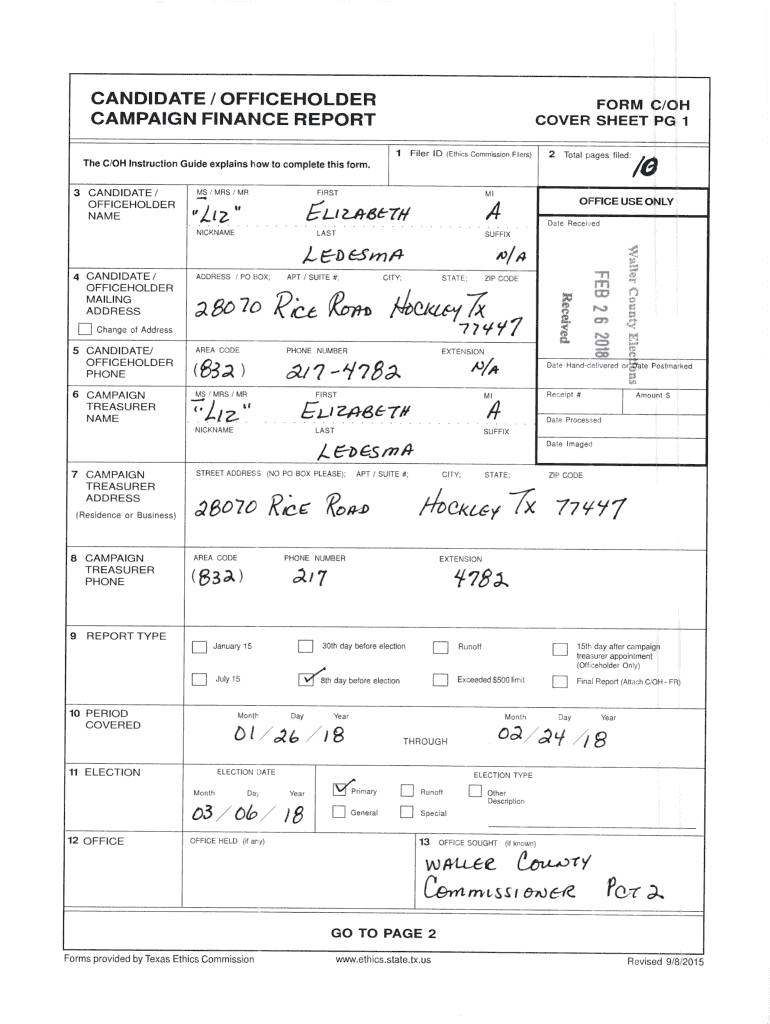 CANDIDATE / OFFICEHOLDER
CAMPAIGN FINANCE REPORT
FORM C/OH
COVER SHEET PG 1
The C/OH Instruction Guide explains how to complete this form.
1 Filer ID (Ethics Commission Filers)
2 Total pages filed:
10
3 CANDIDATE /
OFFICEHOLDER
NAME
MS / MRS / MR FIRST MI
"LIZ" ELIZABETH A
NICKNAME LAST SUFFIX
LEDESMA N/A
OFFICE USE ONLY
Date Received
Waller County Elections
FEB 26 2018
Received
4 CANDIDATE /
OFFICEHOLDER
MAILING
ADDRESS
Change of Address
ADDRESS / PO BOX; APT / SUITE #; CITY; STATE; ZIP CODE
28070 RICE ROAD HOCKLEY TX
77447
5 CANDIDATE/
OFFICEHOLDER
PHONE
AREA CODE PHONE NUMBER EXTENSION
(832) 217-4782 N/A
Date Hand-delivered or Date Postmarked
6 CAMPAIGN
TREASURER
NAME
MS / MRS / MR FIRST MI
"LIZ" ELIZABETH A
NICKNAME LAST SUFFIX
LEDESMA
Receipt # Amount $
Date Processed
Date Imaged
7 CAMPAIGN
TREASURER
ADDRESS
(Residence or Business)
STREET ADDRESS (NO PO BOX PLEASE); APT / SUITE #; CITY; STATE; ZIP CODE
28070 RICE ROAD HOCKLEY TX 77447
8 CAMPAIGN
TREASURER
PHONE
AREA CODE PHONE NUMBER EXTENSION
(832) 217 4782
9 REPORT TYPE
January 15 30th day before election Runoff 15th day after campaign
treasurer appointment
(Officeholder Only)
July 15 8th day before election Exceeded $500 limit Final Report (Attach C/OH - FR)
10 PERIOD
COVERED
Month Day Year Month Day Year
01/26/18 THROUGH 02/24/18
11 ELECTION
ELECTION DATE
Month Day Year
03/06/18
ELECTION TYPE
Primary Runoff Other
Description
General Special
12 OFFICE
OFFICE HELD (if any)
13 OFFICE SOUGHT (if known)
WALLER COUNTY
COMMISSIONER PCT 2
GO TO PAGE 2
Forms provided by Texas Ethics Commission www.ethics.state.tx.us Revised 9/8/2015